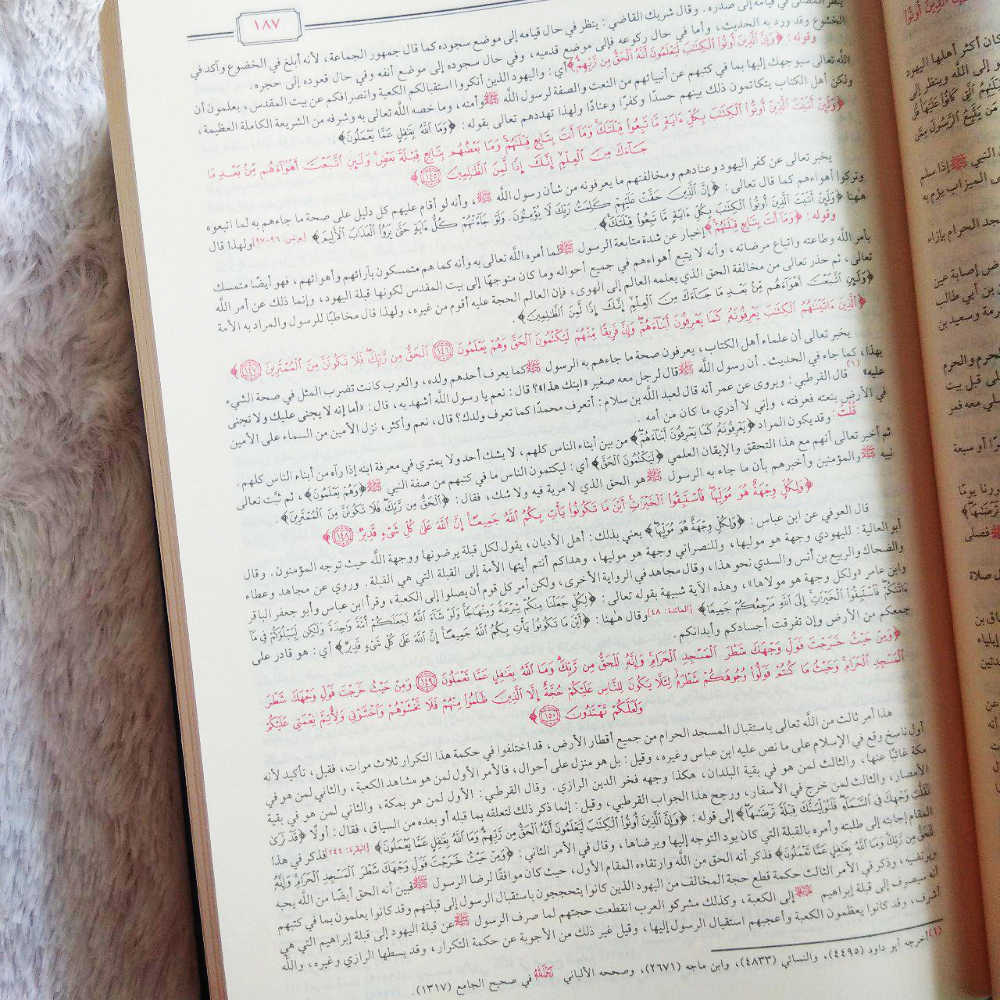 ١٨٧
ينظر المصلي في قيامه إلى صدره. وقال شريك القاضي: ينظر في حال قيامه إلى موضع سجوده كما قال جمهور الجماعة، لأنه أبلغ في الخضوع وآكد في
الخشوع وقد ورد به الحديث، وأما في حال ركوعه فإلى موضع قدميه، وفي حال سجوده إلى موضع أنفه وفي حال قعوده إلى حجره.
وقوله: ﴿وَإِنَّ الَّذِينَ أُوتُوا الْكِتَابَ لَيَعْلَمُونَ أَنَّهُ الْحَقُّ مِن رَّبِّهِمْ﴾ أي: واليهود الذين أنكروا استقبالكم الكعبة وانصرافكم عن بيت المقدس، يعلمون أن
الله تعالى سيوجهك إليها بما في كتبهم عن أنبيائهم من النعت والصفة لرسول الله ﷺ وأمته، وما خصه الله تعالى به وشرفه من الشريعة الكاملة العظيمة،
ولكن أهل الكتاب يتكاتمون ذلك بينهم حسدًا وكفرًا وعنادًا ولهذا تهددهم تعالى بقوله: ﴿وَمَا اللَّهُ بِغَافِلٍ عَمَّا يَعْمَلُونَ﴾.
﴿وَلَئِنْ أَتَيْتَ الَّذِينَ أُوتُوا الْكِتَابَ بِكُلِّ آيَةٍ مَّا تَبِعُوا قِبْلَتَكَ وَمَا أَنتَ بِتَابِعٍ قِبْلَتَهُمْ وَمَا بَعْضُهُم بِتَابِعٍ قِبْلَةَ بَعْضٍ وَلَئِنِ اتَّبَعْتَ أَهْوَاءَهُم مِّن بَعْدِ مَا
جَاءَكَ مِنَ الْعِلْمِ إِنَّكَ إِذًا لَّمِنَ الظَّالِمِينَ ١٤٥﴾
يخبر تعالى عن كفر اليهود وعنادهم ومخالفتهم ما يعرفونه من شأن رسول الله ﷺ، وأنه لو أقام عليهم كل دليل على صحة ما جاءهم به لما اتبعوه
وتركوا أهواءهم كما قال تعالى: ﴿إِنَّ الَّذِينَ حَقَّتْ عَلَيْهِمْ كَلِمَتُ رَبِّكَ لَا يُؤْمِنُونَ وَلَوْ جَاءَتْهُمْ كُلُّ آيَةٍ حَتَّى يَرَوُا الْعَذَابَ الْأَلِيمَ﴾ [يونس: ٩٦-٩٧] ولهذا قال
ههنا ﴿وَلَئِنْ أَتَيْتَ الَّذِينَ أُوتُوا الْكِتَابَ بِكُلِّ آيَةٍ مَّا تَبِعُوا قِبْلَتَكَ﴾
وقوله: ﴿وَمَا أَنتَ بِتَابِعٍ قِبْلَتَهُمْ﴾ إخبار عن شدة متابعة الرسول ﷺ لما أمره الله تعالى به وأنه كما هم متمسكون بآرائهم وأهوائهم، فهو أيضًا متمسك
بأمر الله وطاعته واتباع مرضاته، وأنه لا يتبع أهواءهم في جميع أحواله وما كان متوجهًا إلى بيت المقدس لكونها قبلة اليهود، وإنما ذلك عن أمر الله
تعالى، ثم حذر تعالى من مخالفة الحق الذي يعلمه العالم إلى الهوى، فإن العالم الحجة عليه أقوم من غيره، ولهذا قال مخاطبًا للرسول والمراد به الأمة
﴿وَلَئِنِ اتَّبَعْتَ أَهْوَاءَهُم مِّن بَعْدِ مَا جَاءَكَ مِنَ الْعِلْمِ إِنَّكَ إِذًا لَّمِنَ الظَّالِمِينَ﴾
﴿الَّذِينَ آتَيْنَاهُمُ الْكِتَابَ يَعْرِفُونَهُ كَمَا يَعْرِفُونَ أَبْنَاءَهُمْ وَإِنَّ فَرِيقًا مِّنْهُمْ لَيَكْتُمُونَ الْحَقَّ وَهُمْ يَعْلَمُونَ ١٤٦ الْحَقُّ مِن رَّبِّكَ فَلَا تَكُونَنَّ مِنَ الْمُمْتَرِينَ ١٤٧﴾
يخبر تعالى أن علماء أهل الكتاب، يعرفون صحة ما جاءهم به الرسول ﷺ كما يعرف أحدهم ولده، والعرب كانت تضرب المثل في صحة الشيء
بهذا، كما جاء في الحديث. أن رسول الله ﷺ قال لرجل معه صغير «ابنك هذا؟» قال: نعم يا رسول الله أشهد به، قال: «أما إنه لا يجني عليك ولا تجني
عليه»(١) قال القرطبي: ويروى عن عمر أنه قال لعبد الله بن سلام: أتعرف محمدًا كما تعرف ولدك؟ قال، نعم وأكثر، نزل الأمين من السماء على الأمين
في الأرض بنعته فعرفته، وإني لا أدري ما كان من أمه.
قلت وقد يكون المراد ﴿يَعْرِفُونَهُ كَمَا يَعْرِفُونَ أَبْنَاءَهُمْ﴾ من بين أبناء الناس كلهم، لا يشك أحد ولا يمتري في معرفة ابنه إذا رآه من أبناء الناس كلهم.
ثم أخبر تعالى أنهم مع هذا التحقق والإيقان العلمي ﴿لَيَكْتُمُونَ الْحَقَّ﴾ أي: ليكتمون الناس ما في كتبهم من صفة النبي ﷺ ﴿وَهُمْ يَعْلَمُونَ﴾، ثم ثبَّت تعالى
نبيه ﷺ والمؤمنين وأخبرهم بأن ما جاء به الرسول ﷺ هو الحق الذي لا مرية فيه ولا شك، فقال: ﴿الْحَقُّ مِن رَّبِّكَ فَلَا تَكُونَنَّ مِنَ الْمُمْتَرِينَ﴾.
﴿وَلِكُلٍّ وِجْهَةٌ هُوَ مُوَلِّيهَا فَاسْتَبِقُوا الْخَيْرَاتِ أَيْنَ مَا تَكُونُوا يَأْتِ بِكُمُ اللَّهُ جَمِيعًا إِنَّ اللَّهَ عَلَى كُلِّ شَيْءٍ قَدِيرٌ ١٤٨﴾
قال العوفي عن ابن عباس: ﴿وَلِكُلٍّ وِجْهَةٌ هُوَ مُوَلِّيهَا﴾ يعني بذلك: أهل الأديان، يقول لكل قبلة يرضونها ووجهة الله حيث توجه المؤمنون. وقال
أبو العالية: لليهودي وجهة هو موليها، وللنصراني وجهة هو موليها، وهداكم أنتم أيتها الأمة إلى القبلة التي هي القبلة. وروي عن مجاهد وعطاء
والضحاك والربيع بن أنس والسدي نحو هذا، وقال مجاهد في الرواية الأخرى، ولكن أمر كل قوم أن يصلوا إلى الكعبة، وقرأ ابن عباس وأبو جعفر الباقر
وابن عامر «ولكل وجهة هو مولاها»، وهذه الآية شبيهة بقوله تعالى: ﴿لِكُلٍّ جَعَلْنَا مِنكُمْ شِرْعَةً وَمِنْهَاجًا وَلَوْ شَاءَ اللَّهُ لَجَعَلَكُمْ أُمَّةً وَاحِدَةً وَلَكِن لِّيَبْلُوَكُمْ فِي مَا
آتَاكُمْ فَاسْتَبِقُوا الْخَيْرَاتِ إِلَى اللَّهِ مَرْجِعُكُمْ جَمِيعًا﴾ [المائدة: ٤٨] وقال ههنا: ﴿أَيْنَ مَا تَكُونُوا يَأْتِ بِكُمُ اللَّهُ جَمِيعًا إِنَّ اللَّهَ عَلَى كُلِّ شَيْءٍ قَدِيرٌ﴾ أي: هو قادر على
جمعكم من الأرض وإن تفرقت أجسادكم وأبدانكم.
﴿وَمِنْ حَيْثُ خَرَجْتَ فَوَلِّ وَجْهَكَ شَطْرَ الْمَسْجِدِ الْحَرَامِ وَإِنَّهُ لَلْحَقُّ مِن رَّبِّكَ وَمَا اللَّهُ بِغَافِلٍ عَمَّا تَعْمَلُونَ ١٤٩ وَمِنْ حَيْثُ خَرَجْتَ فَوَلِّ وَجْهَكَ شَطْرَ
الْمَسْجِدِ الْحَرَامِ وَحَيْثُ مَا كُنتُمْ فَوَلُّوا وُجُوهَكُمْ شَطْرَهُ لِئَلَّا يَكُونَ لِلنَّاسِ عَلَيْكُمْ حُجَّةٌ إِلَّا الَّذِينَ ظَلَمُوا مِنْهُمْ فَلَا تَخْشَوْهُمْ وَاخْشَوْنِي وَلِأُتِمَّ نِعْمَتِي عَلَيْكُمْ
وَلَعَلَّكُمْ تَهْتَدُونَ ١٥٠﴾
هذا أمر ثالث من الله تعالى باستقبال المسجد الحرام من جميع أقطار الأرض، قد اختلفوا في حكمة هذا التكرار ثلاث مرات، فقيل، تأكيد لأنه
أول ناسخ وقع في الإسلام على ما نص عليه ابن عباس وغيره، وقيل: بل هو منزل على أحوال، فالأمر الأول لمن هو مشاهد الكعبة، والثاني لمن هو في
مكة غائبًا عنها، والثالث لمن هو في بقية البلدان، هكذا وجهه فخر الدين الرازي. وقال القرطبي: الأول لمن هو بمكة، والثاني لمن هو في بقية
الأمصار، والثالث لمن خرج في الأسفار، ورجح هذا الجواب القرطبي، وقيل: إنما ذكر ذلك لتعلقه بما قبله أو بعده من السياق، فقال: أولًا ﴿قَدْ نَرَى
تَقَلُّبَ وَجْهِكَ فِي السَّمَاءِ فَلَنُوَلِّيَنَّكَ قِبْلَةً تَرْضَاهَا﴾ إلى قوله: ﴿وَإِنَّ الَّذِينَ أُوتُوا الْكِتَابَ لَيَعْلَمُونَ أَنَّهُ الْحَقُّ مِن رَّبِّهِمْ وَمَا اللَّهُ بِغَافِلٍ عَمَّا يَعْمَلُونَ﴾ [البقرة: ١٤٤] فذكر في هذا
المقام إجابته إلى طلبته وأمره بالقبلة التي كان يود التوجه إليها ويرضاها، وقال في الأمر الثاني: ﴿وَمِنْ حَيْثُ خَرَجْتَ فَوَلِّ وَجْهَكَ شَطْرَ الْمَسْجِدِ الْحَرَامِ وَإِنَّهُ
لَلْحَقُّ مِن رَّبِّكَ وَمَا اللَّهُ بِغَافِلٍ عَمَّا تَعْمَلُونَ﴾ فذكر أنه الحق من الله وارتقاءه المقام الأول، حيث كان موافقًا لرضا الرسول ﷺ فبين أنه الحق أيضًا من الله يحبه
ويرتضيه، وذكر في الأمر الثالث حكمة قطع حجة المخالف من اليهود الذين كانوا يتحججون باستقبال الرسول إلى قبلتهم وقد كانوا يعلمون بما في كتبهم
أنه سيصرف إلى قبلة إبراهيم إلى الكعبة، وكذلك مشركو العرب انقطعت حجتهم لما صرف الرسول ﷺ عن قبلة اليهود إلى قبلة إبراهيم التي هي
أشرف، وقد كانوا يعظمون الكعبة وأعجبهم استقبال الرسول إليها، وقيل غير ذلك من الأجوبة عن حكمة التكرار، وقد بسطها الرازي وغيره، والله
(١) أخرجه أبو داود (٤٤٩٥)، والنسائي (٤٨٣٣)، وابن ماجه (٢٦٧١)، وصححه الألباني في صحيح الجامع (١٣١٧).